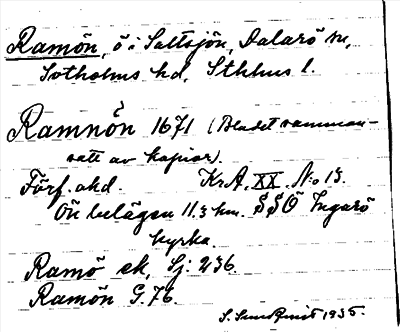 Ramön, ö i Saltsjön, Dalarö sn,
Sotholms hd, Sthlms l.
Ramnön 1671 (Bladet samman-
satt av kopior).
Förf. okd. KrA, XX. No 13.
Ön belägen 11.3 km. SSÖ Ingarö
kyrka.
Ramö ek, Sj: 236.
Ramön G. 76.
1935.